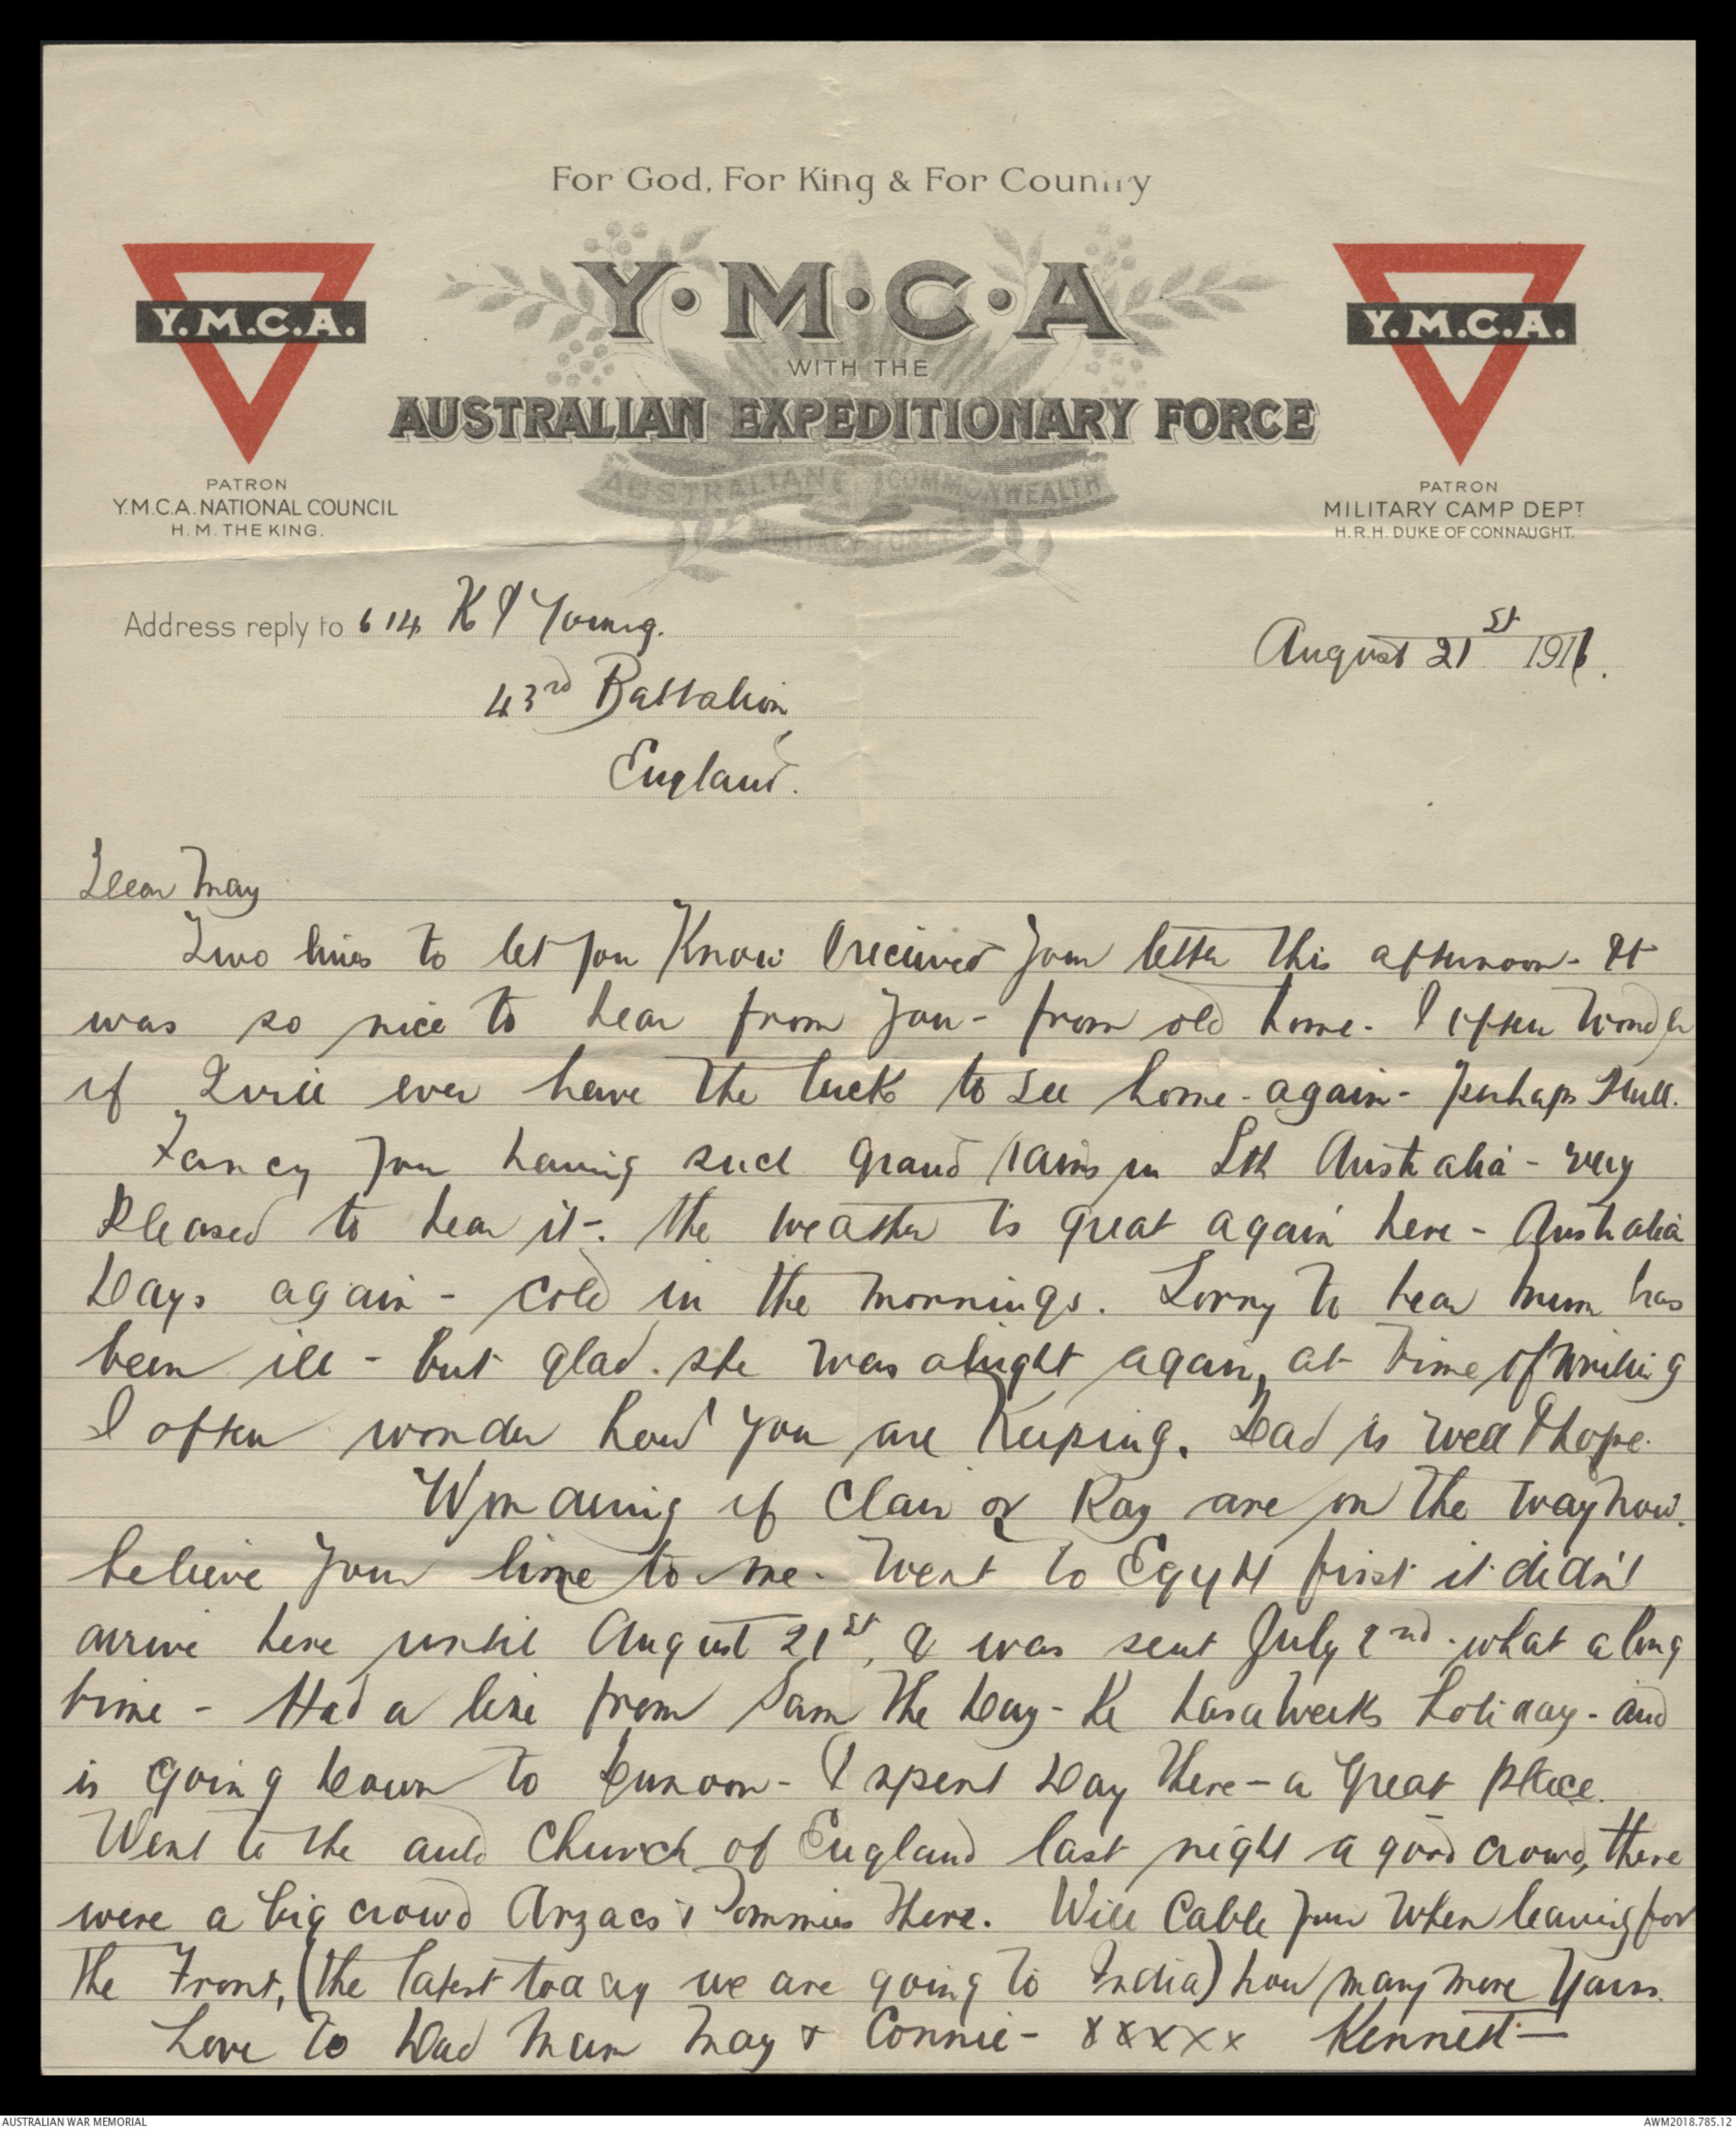 For God, For King & For Country
Y.M.C.A.
Y·M·C·A
Y.M.C.A.
WITH THE
AUSTRALIAN EXPEDITIONARY FORCE
AUSTRALIAN COMMONWEALTH
MILITARY FORCES
PATRON
Y.M.C.A. NATIONAL COUNCIL
H.M. THE KING.
PATRON
MILITARY CAMP DEPT
H.R.H. DUKE OF CONNAUGHT.
Address reply to 614 K J Young.
August 21st 1916.
43rd Battalion,
England.
Dear May
Two lines to let you Know I received your letter this afternoon - It
was so nice to hear from you - from old home - I often wonder
if I will ever have the luck to see home - again - perhaps I will.
Fancy you having such grand rains in Sth Australia - very
pleased to hear it -. The weather is great again here - Australia
Days again - cold in the mornings. Sorry to hear mum has
been ill - but glad. she was alright again, at time of writing
I often wonder how you are Keeping. Dad is well I hope.
Wondering if Clair or Ray are on the way now.
believe your line to me - went to Egypt first it didn't
arrive here until August 21st, & was sent July 2nd. what a long
time - Had a line from Sam the Day - He has a weeks holiday - and
is going down to Dunoon - I spent Day there - a great place.
Went to the auld Church of England last night a good crowd, there
were a big crowd Anzacs & Tommies there. Will cable you when leaving for
the Front, (the latest today we are going to India) how many more yarns.
Love to Dad Mum May & Connie - xxxxx Kenneth -
AUSTRALIAN WAR MEMORIAL
AWM2018.785.12